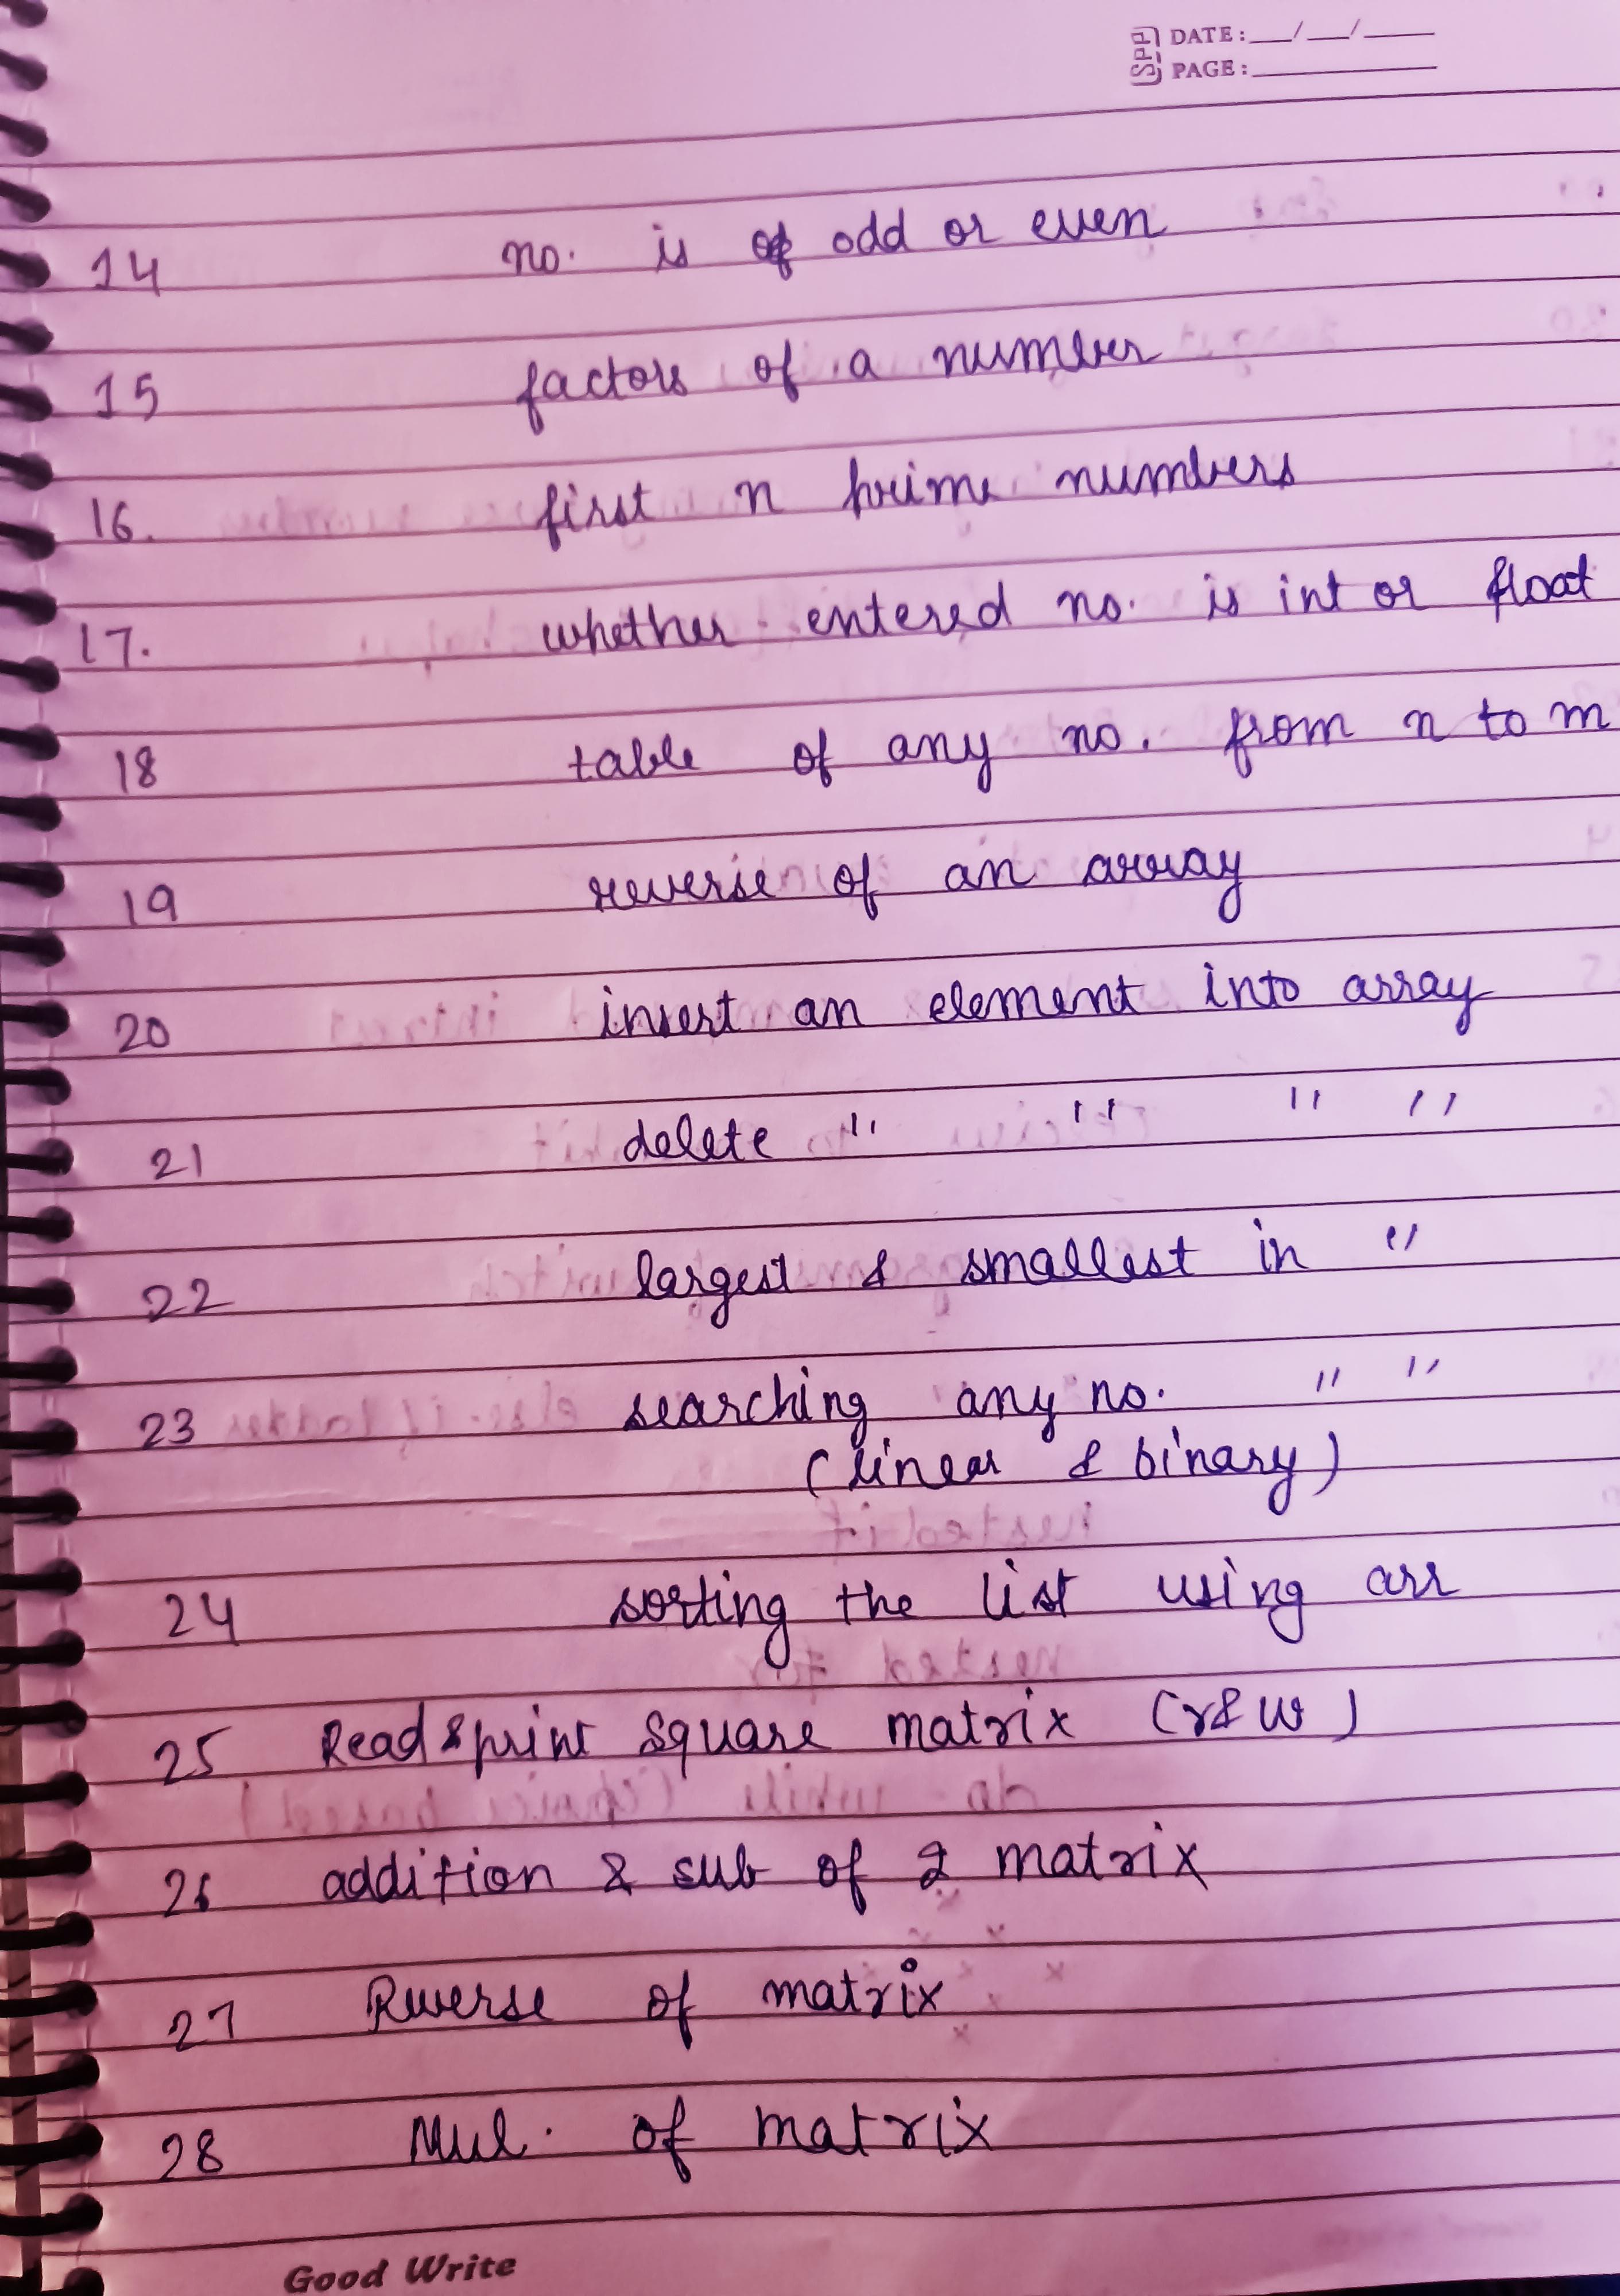 SPP DATE: __/__/____
PAGE: ________
14 no. is odd or even
15 factors of a number
16. first n prime numbers
17. whether entered no. is int or float
18 table of any no. from n to m
19 reverse of an array
20 insert an element into array
21 delete " " " "
22 largest & smallest in "
23 searching any no. " "
(linear & binary)
24 sorting the list using arr
25 Read & print square matrix (r & w)
26 addition & sub of 2 matrix
27 Reverse of matrix
28 Mul. of matrix
Good Write